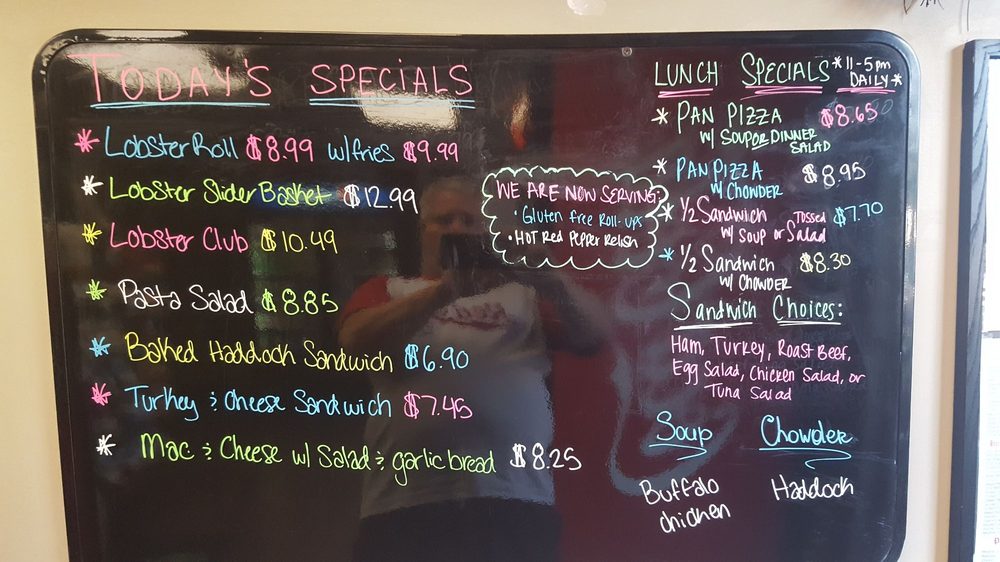 TODAY'S SPECIALS
* Lobster Roll $8.99 w/fries $9.99
* Lobster Slider Basket $12.99
* Lobster Club $10.49
* Pasta Salad $8.85
* Baked Haddock Sandwich $6.90
* Turkey & Cheese Sandwich $7.45
* Mac & Cheese w/ Salad & garlic bread $8.25
WE ARE NOW SERVING:
• Gluten free Roll-ups
• HOT Red Pepper Relish
LUNCH SPECIALS *11-5pm
DAILY*
* PAN PIZZA $8.65
w/ SOUP OR DINNER
SALAD
* PAN PIZZA $8.95
w/ CHOWDER
* 1/2 Sandwich Tossed $7.70
w/ SOUP or Salad
* 1/2 Sandwich $8.30
w/ CHOWDER
Sandwich Choices:
Ham, Turkey, Roast Beef,
Egg Salad, Chicken Salad, or
Tuna Salad
Soup Chowder
Buffalo Haddock
chicken